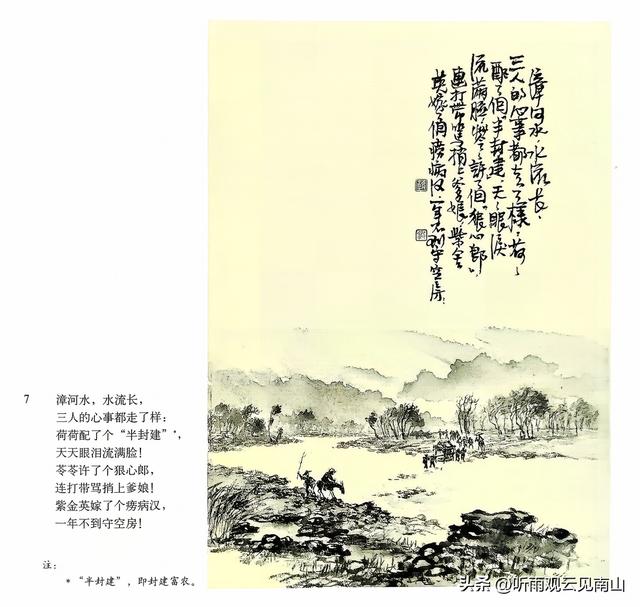 漳河水·水流长、
三人的心事都走了样、荷々
配了个"半封建"、天々眼泪
流满脸、苓々许了个"狠心郎"、
连打带骂捎上爹娘、紫金
英嫁了个痨病汉、一年不到守空房、
7 漳河水，水流长，
三人的心事都走了样：
荷荷配了个“半封建”*，
天天眼泪流满脸！
苓苓许了个狠心郎，
连打带骂捎上爹娘！
紫金英嫁了个痨病汉，
一年不到守空房！
注：
*“半封建”，即封建富农。
头条 @听雨观云见南山